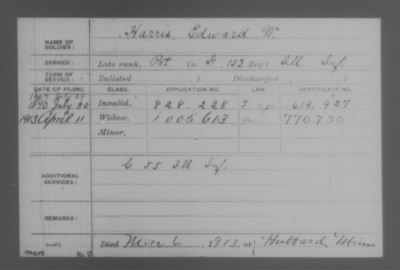 Harris, Edward W.
NAME OF SOLDIER:
SERVICE: Late rank, Pvt Co. F, 153 Reg't Ill Inf.
TERM OF SERVICE: Enlisted 1 Discharged 1
DATE OF FILING. CLASS. APPLICATION NO. LAW. CERTIFICATE NO.
1893 July 30 Invalid, 828.228 619.927
1913 April 11 Widow, 1006613 770730
Minor,
C 55 Ill Inf.
ADDITIONAL SERVICES:
REMARKS:
Died Mar 6, 1913, at Hubbard Minn